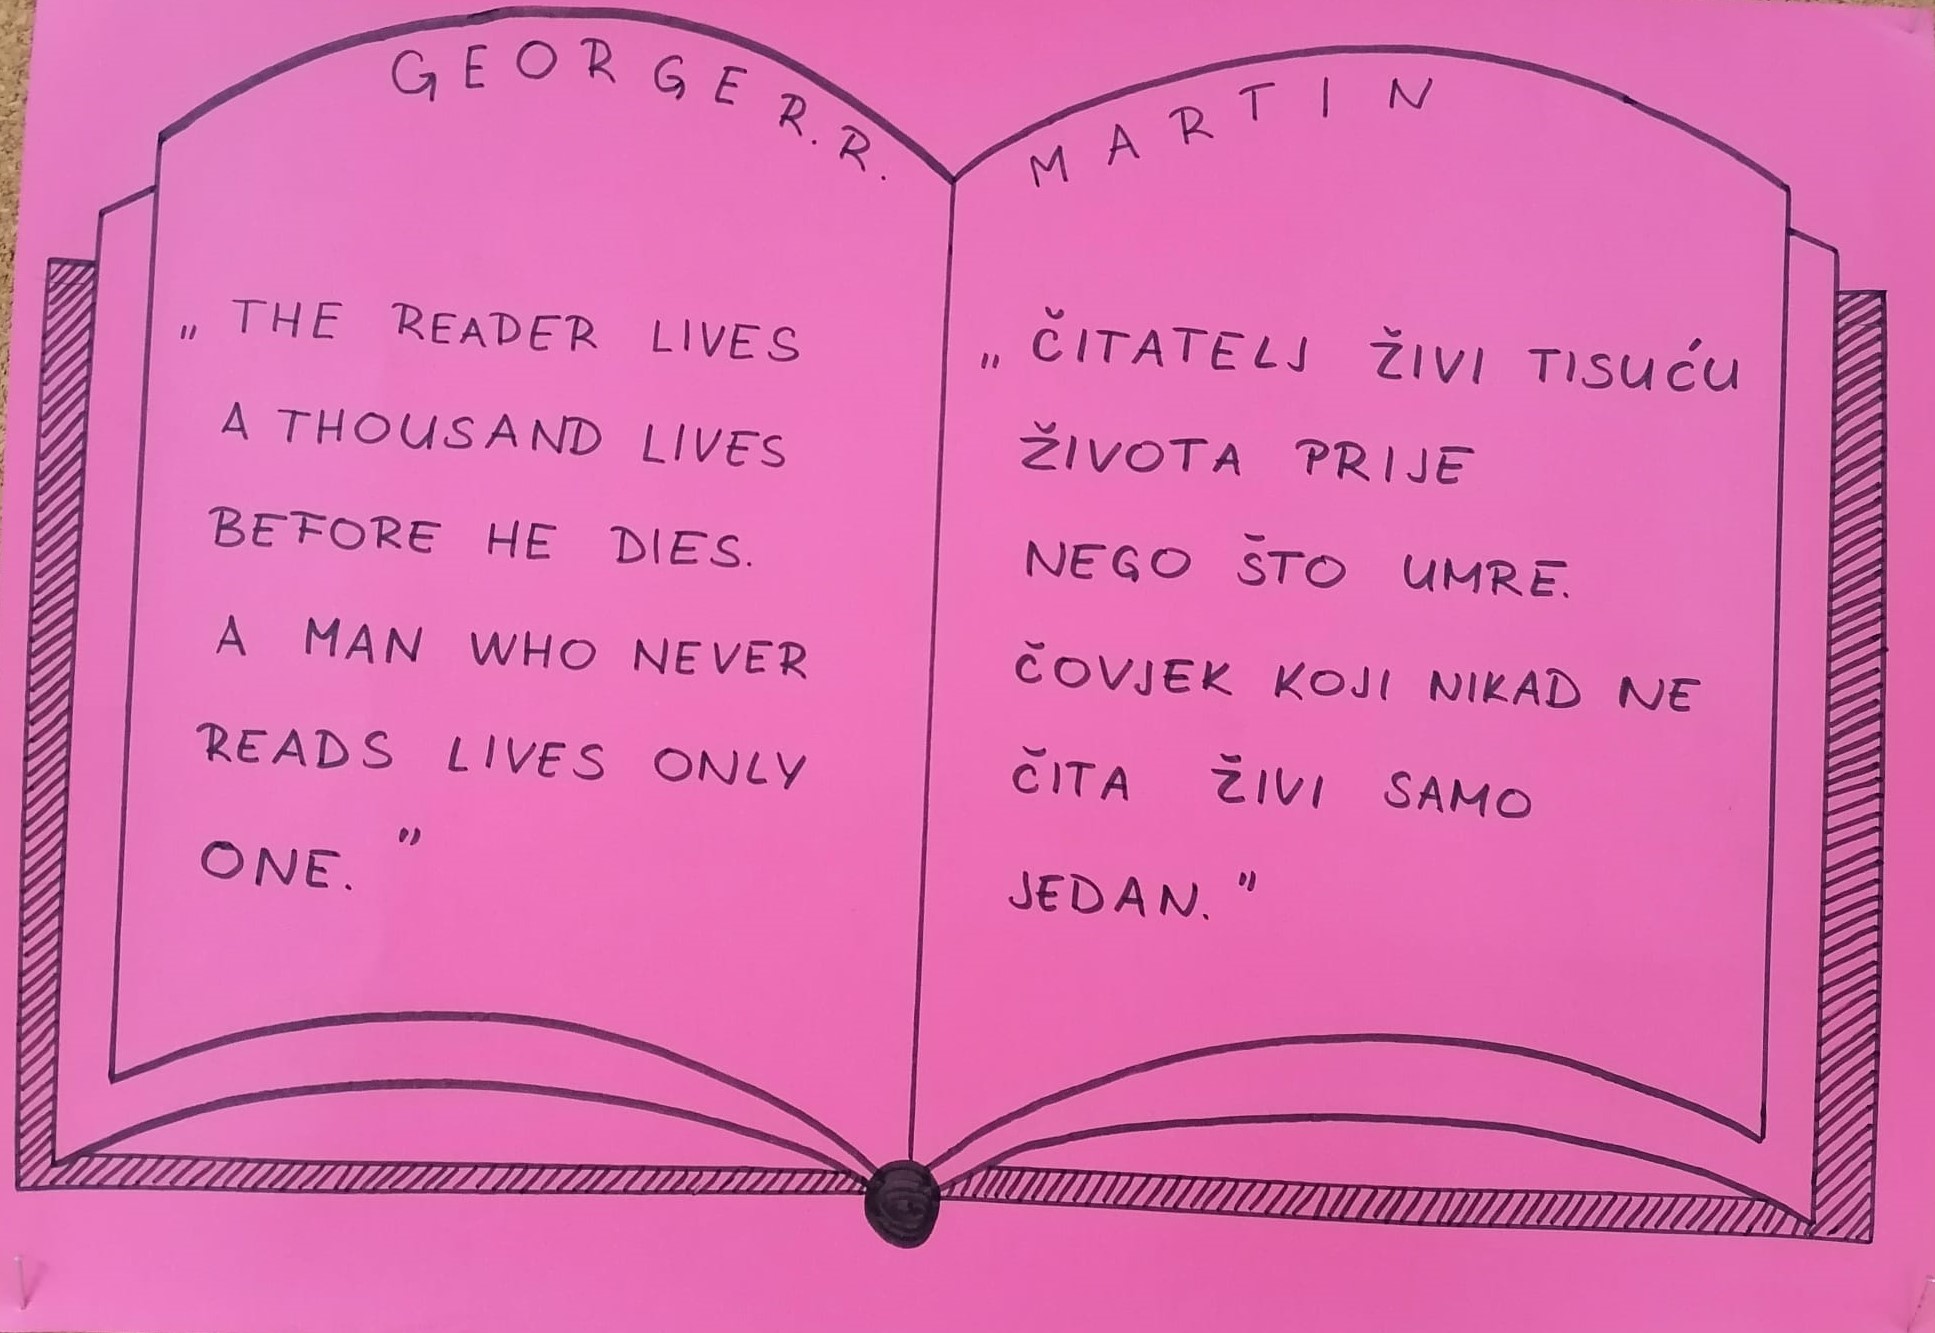 GEORGE R. R. MARTIN
„THE READER LIVES
A THOUSAND LIVES
BEFORE HE DIES.
A MAN WHO NEVER
READS LIVES ONLY
ONE."
„ČITATELJ ŽIVI TISUĆU
ŽIVOTA PRIJE
NEGO ŠTO UMRE.
ČOVJEK KOJI NIKAD NE
ČITA ŽIVI SAMO
JEDAN."